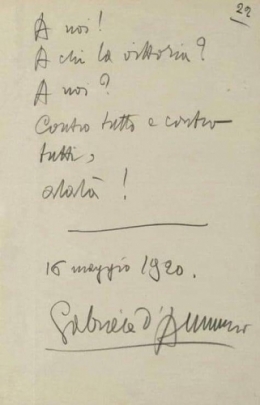 22
A noi!
A chi la vittoria?
A noi?
Contro tutto e contro
tutti,
alalà!
16 maggio 1920.
Gabriele d'Annunzio